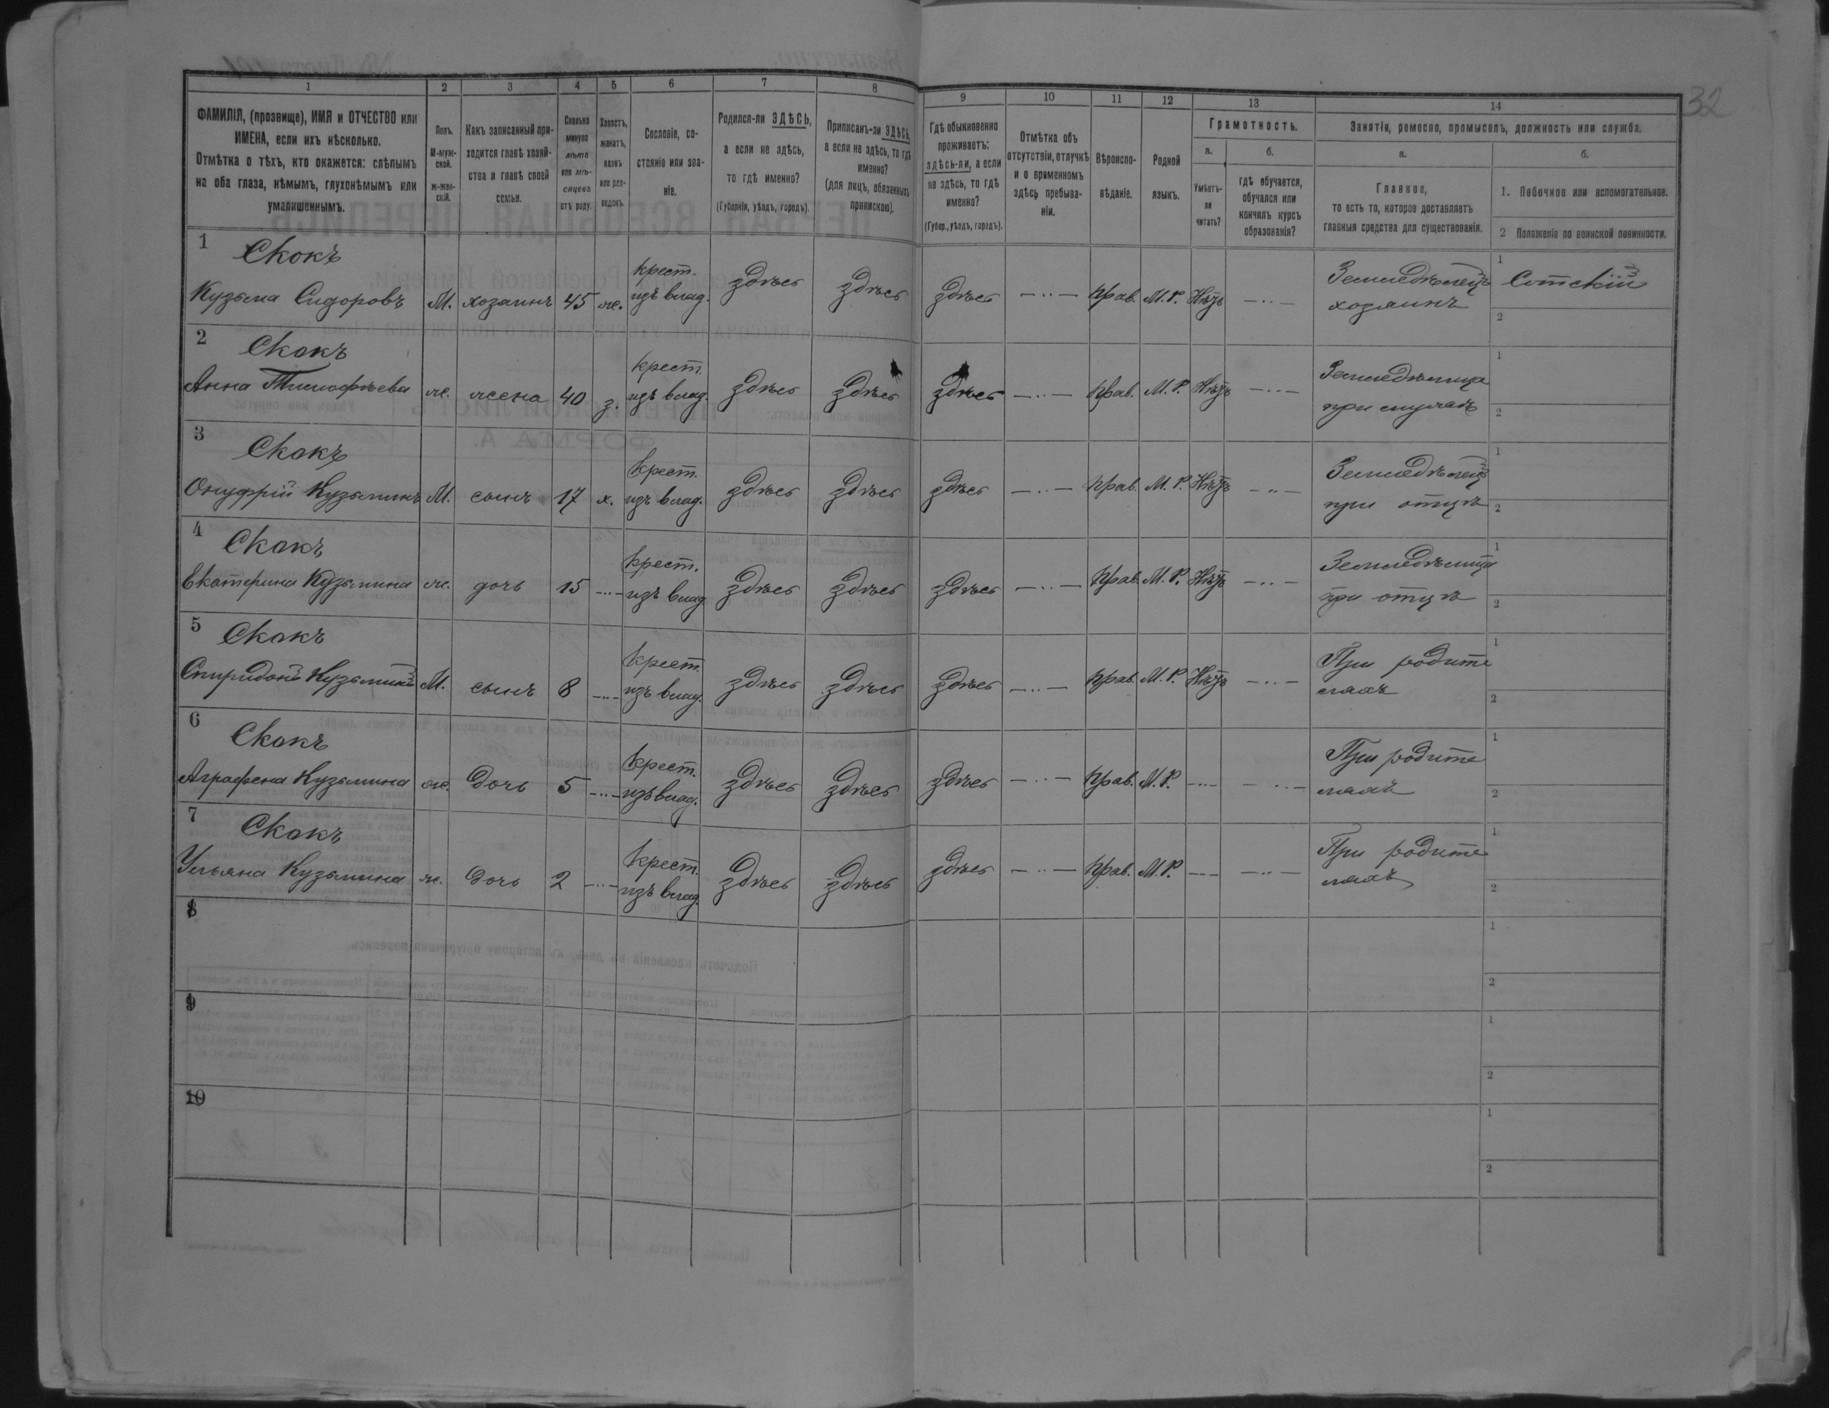 32
1 2 3 4 5 6 7 8 9 10 11 12 13 14
ФАМИЛІЯ, (прозвище), ИМЯ и ОТЧЕСТВО или ИМЕНА, если ихъ нѣсколько.
Отмѣтка о тѣхъ, кто окажется: слѣпымъ на оба глаза, нѣмымъ, глухонѣмымъ или умалишеннымъ.
Полъ. М-мужской. ж-женскій.
Какъ записанный приходится главѣ хозяйства и главѣ своей семьи.
Сколько минуло лѣтъ или мѣсяцевъ отъ роду.
Холостъ, женатъ, вдовъ или разведенъ.
Сословіе, состояніе или званіе.
Родился-ли ЗДѢСЬ, а если не здѣсь, то гдѣ именно?
(Губернія, уѣздъ, городъ).
Приписанъ-ли ЗДѢСЬ, а если не здѣсь, то гдѣ именно?
(для лицъ, обязанныхъ припискою).
Гдѣ обыкновенно проживаетъ: здѣсь-ли, а если не здѣсь, то гдѣ именно?
(Губер., уѣздъ, городъ).
Отмѣтка объ отсутствіи, отлучкѣ и о временномъ здѣсь пребываніи.
Вѣроисповѣданіе.
Родной языкъ.
Грамотность.
а.
Умѣетъ-ли читать?
б.
гдѣ обучается, обучался или кончилъ курсъ образованія?
Занятія, ремесло, промыселъ, должность или служба.
а.
Главное,
то есть то, которое доставляетъ главныя средства для существованія.
б.
1. Побочное или вспомогательное.
2 Положеніе по воинской повинности.
1 Скокъ
Кузьма Сидоровъ М. хозяинъ 45 же. крест. изъ влад. здѣсь здѣсь здѣсь —··— прав. М.Р. Нѣтъ —··— Земледѣлецъ хозяинъ 1 Сотскій 2
2 Скокъ
Анна Тимофѣева же. жена 40 з. крест. изъ влад. здѣсь здѣсь здѣсь —··— прав. М.Р. Нѣтъ —··— Земледѣлица при мужѣ 1 2
3 Скокъ
Онуфрій Кузьминъ М. сынъ 17 х. крест. изъ влад. здѣсь здѣсь здѣсь —··— прав. М.Р. Нѣтъ —··— Земледѣлецъ при отцѣ 1 2
4 Скокъ
Екатерина Кузьмина же. дочь 15 —··— крест. изъ влад. здѣсь здѣсь здѣсь —··— прав. М.Р. Нѣтъ —··— Земледѣлица при отцѣ 1 2
5 Скокъ
Спиридонъ Кузьминъ М. сынъ 8 —··— крест. изъ влад. здѣсь здѣсь здѣсь —··— прав. М.Р. Нѣтъ —··— При родителяхъ 1 2
6 Скокъ
Аграфена Кузьмина же. дочь 5 —··— крест. изъ влад. здѣсь здѣсь здѣсь —··— прав. М.Р. —··— —··— При родителяхъ 1 2
7 Скокъ
Ульяна Кузьмина же. дочь 2 —··— крест. изъ влад. здѣсь здѣсь здѣсь —··— прав. М.Р. —— —··— При родителяхъ 1 2
8 1 2
9 1 2
10 1 2